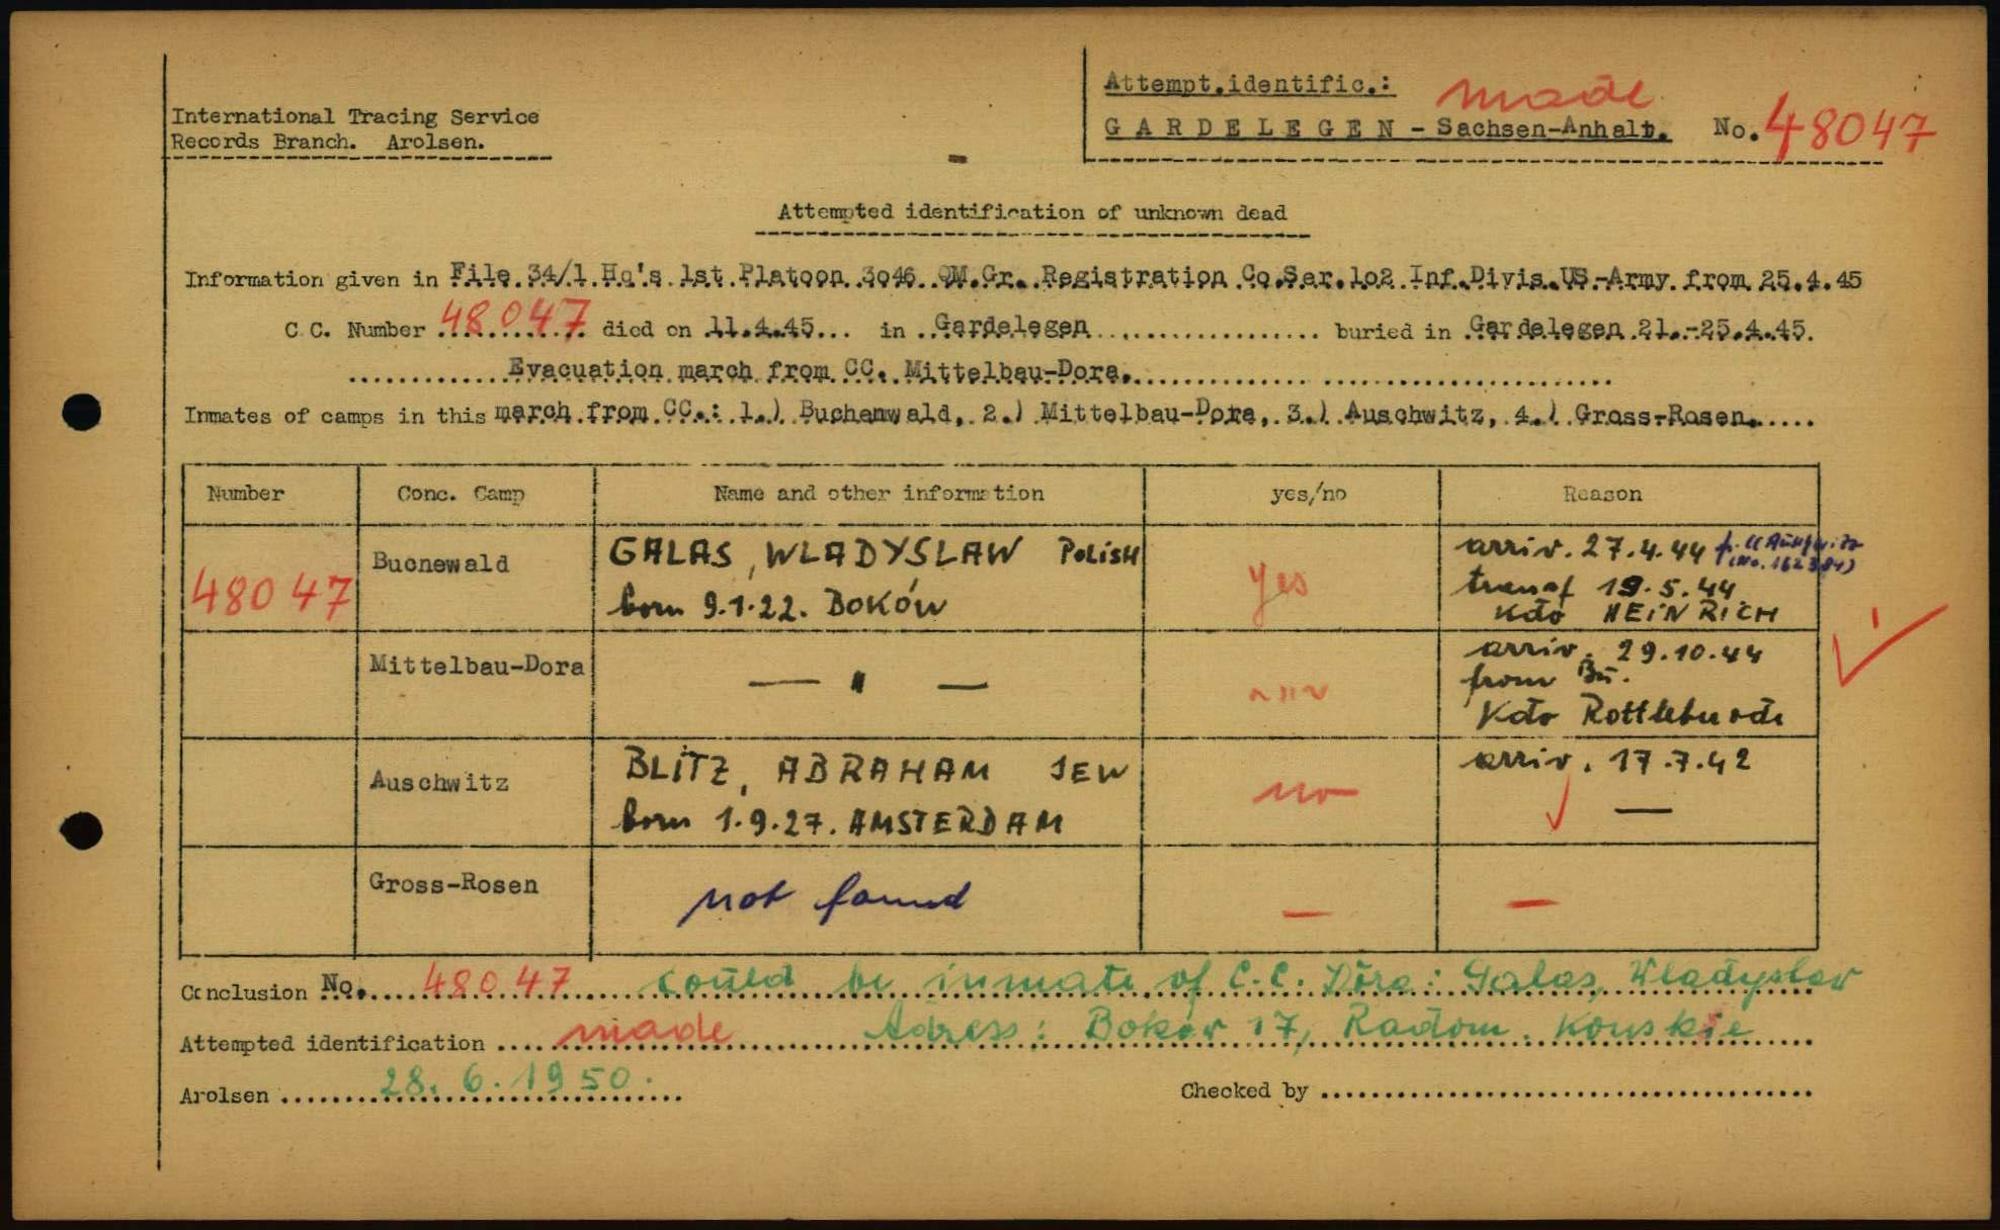 International Tracing Service
Records Branch. Arolsen.
Attempt.identific.: made
GARDELEGEN - Sachsen-Anhalt. No. 48047
Attempted identification of unknown dead
Information given in File 34/1 Hq's 1st Platoon 3o46 QM.Gr. Registration Co.Ser.1o2 Inf.Divis.US-Army from 25.4.45
C.C. Number 48047 died on 11.4.45 in Gardelegen buried in Gardelegen 21.-25.4.45.
Evacuation march from CC. Mittelbau-Dora.
Inmates of camps in this march from CC.: 1.) Buchenwald, 2.) Mittelbau-Dora, 3.) Auschwitz, 4.) Gross-Rosen.
Number Conc. Camp Name and other information yes/no Reason
48047 Bucnewald GALAS, WLADYSLAW POLISH
born 9.1.22. BOKÓW
yes
arriv. 27.4.44
transf 19.5.44
Kdo HEINRICH
Mittelbau-Dora — " — — " —
arriv. 29.10.44
from Bu.
Kdo Rottleberode
Auschwitz BLITZ, ABRAHAM JEW
born 1.9.27. AMSTERDAM
no
arriv. 17.7.42
—
Gross-Rosen not found — —
Conclusion No. 48047 could be inmate of C.C. Dora: Galas, Wladyslav
Attempted identification made Adress: Bokov 17, Radom. Konskie
Arolsen 28.6.1950. Checked by